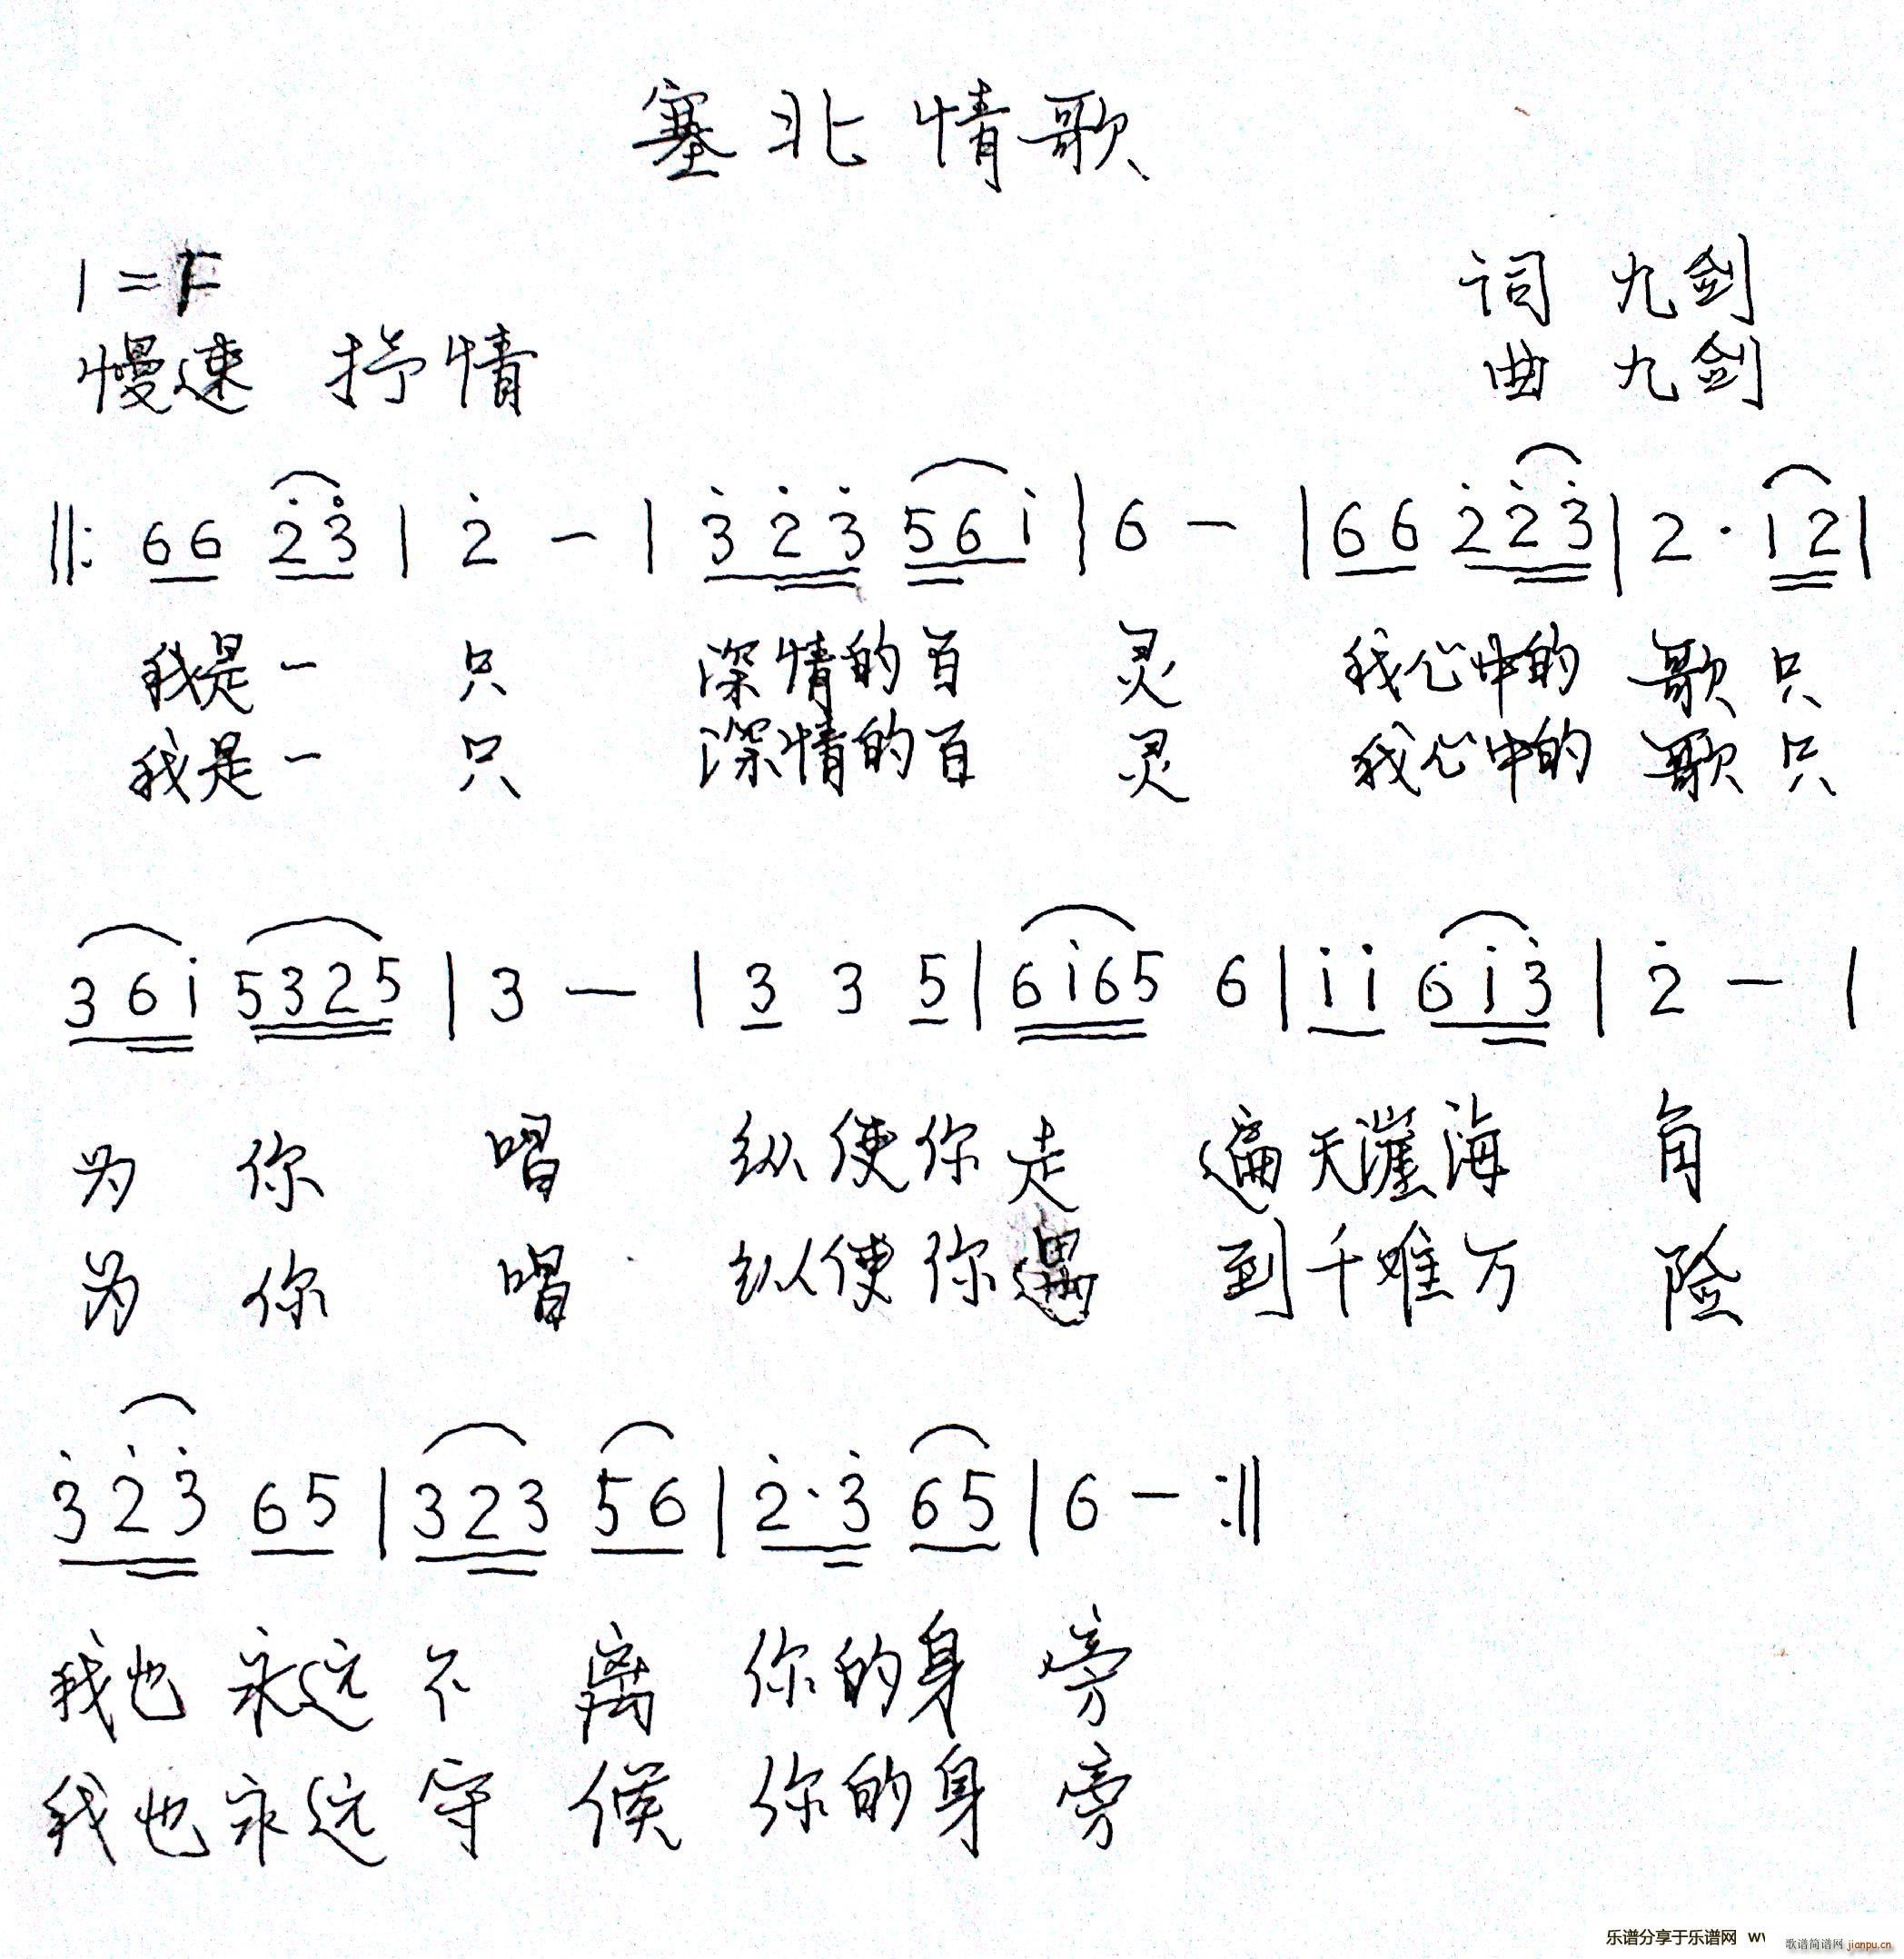 塞北情歌
1=F
词 九剑
慢速 抒情
曲 九剑
‖: 66 2̇3̇ | 2̇ - | 3̇2̇3̇ 56i̇ | 6 - | 66 2̇2̇3̇ | 2· i̇2 |
我是一 只 深情的百 灵 我心中的 歌只
我是一 只 深情的百 灵 我心中的 歌只
36i̇ 5325 | 3 - | 3 3 5 | 6i̇65 6 | i̇i̇ 6i̇3̇ | 2̇ - |
为 你 唱 纵使你走 遍天涯海 角
为 你 唱 纵使你遇 到千难万 险
3̇2̇3̇ 65 | 323 56 | 2̇·3̇ 65 | 6 - :‖
我也 永远 不 离 你的身 旁
我也永远 守 候 你的身 旁
乐谱分享于乐谱网 ww
歌谱简谱网 jianpu.cn